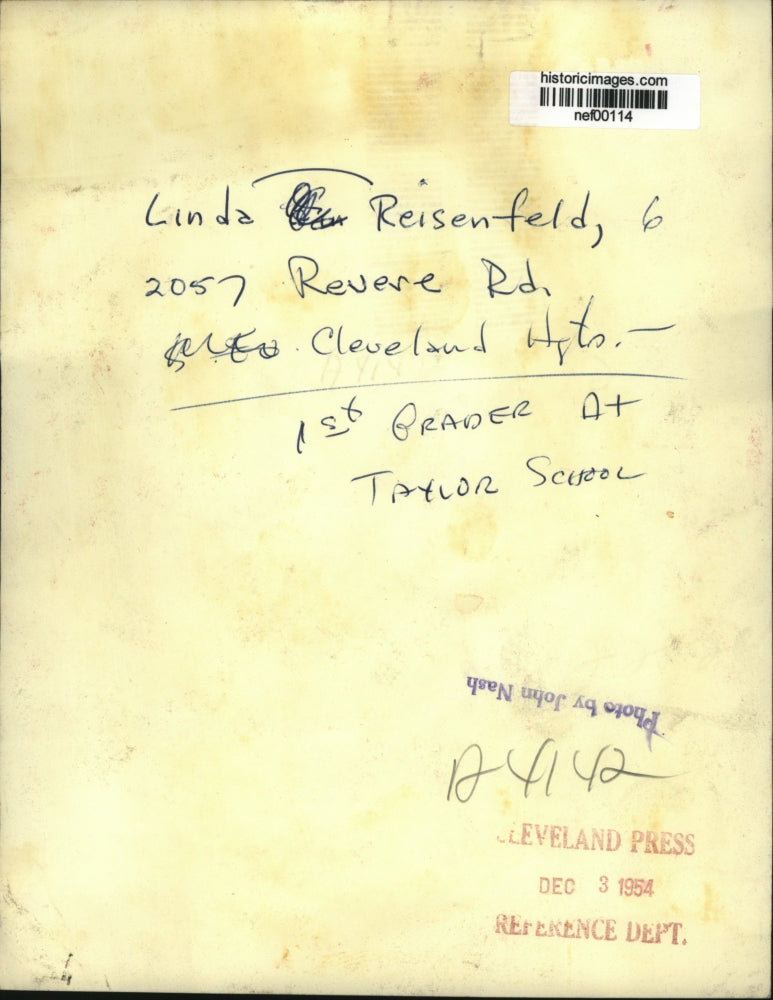 historicimages.com
nef00114
Linda Reisenfeld, 6
2057 Revere Rd.
Cleveland Hgts. —
1st GRADER At
TAYLOR SCHOOL
Photo by John Nash
A4142
CLEVELAND PRESS
DEC 3 1954
REFERENCE DEPT.